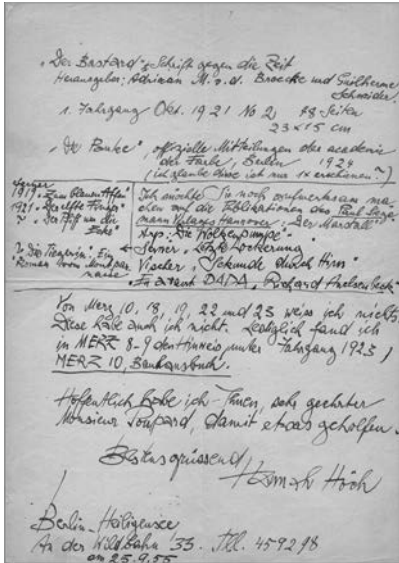 „Der Bastard“, Schrift gegen die Zeit
Herausgeber: Adriaan M. v. d. Broecke und Guilherme
Schneider.
1. Jahrgang Okt. 1921 No 2 48 Seiten
23 x 15 cm
„Die Panke“, offizielle Mitteilungen des academie
der Farbe, Berlin 1924
(ich glaube diese ist nur 1x erschienen ~)
Serner
1919 „Zum blauen Affen“
1921 „Der elfte Finger“
~ „Der Pfiff um die
Ecke“
~ „Die Tigerin“, Ein
Roman vom
Ich möchte Sie noch aufmerksam ma-
chen auf die Publikationen des Paul Steege-
mann Verlages Hannover: „Der Marstall“
Arp: „Die Wolkenpumpe“
← Serner, „Letzte Lockerung
Vischer, „Sekunde durch Hirn“
En avant DADA, Richard Huelsenbeck“
Von Merz 10, 18, 19, 22 und 23 weiss ich nichts.
Diese habe auch ich nicht. Lediglich fand ich
in MERZ 8-9 den Hinweis, unter Jahrgang 1923,
MERZ 10, Bauhausbuch.
Hoffentlich habe ich Ihnen, sehr geehrter
Monsieur Poupard, damit etwas geholfen.
Bestens grüssend
Hannah Höch
Berlin-Heiligensee
An der Wildbahn 33. Tel. 459298
am 25.9.55